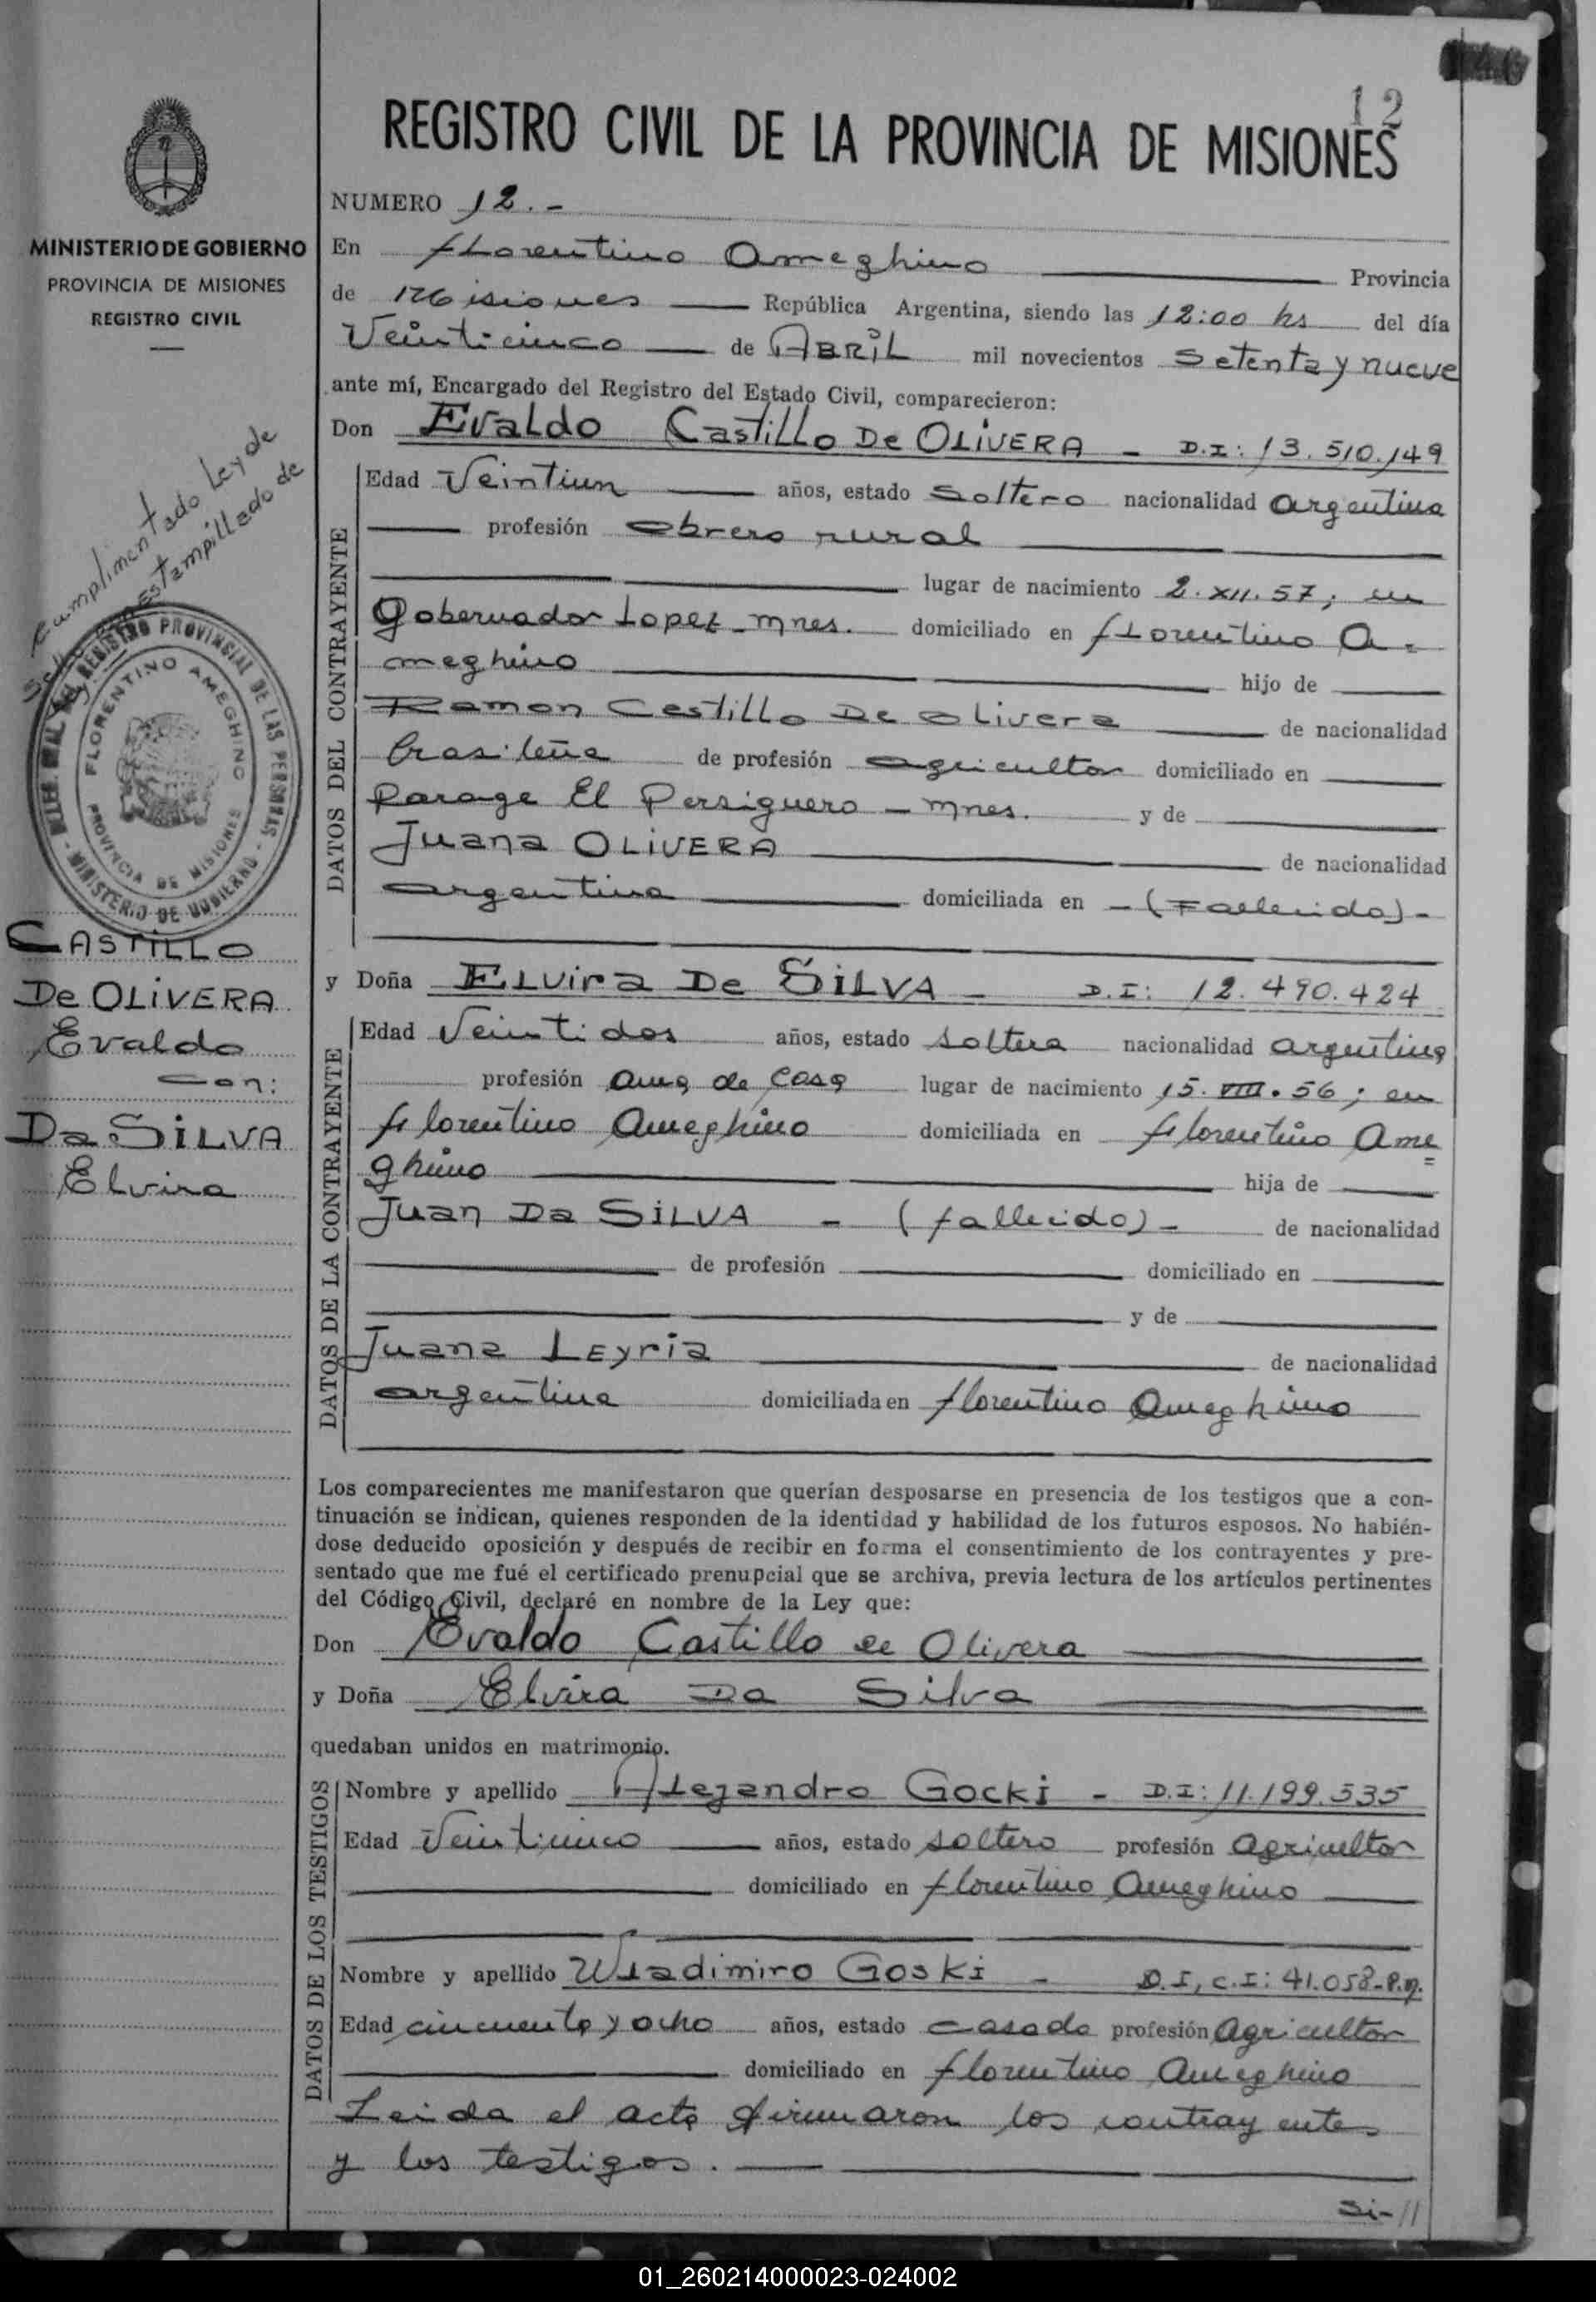 12
REGISTRO CIVIL DE LA PROVINCIA DE MISIONES
MINISTERIO DE GOBIERNO
PROVINCIA DE MISIONES
REGISTRO CIVIL
Cumplimentado Ley de
Sellado y Estampillado de
REGISTRO PROVINCIAL DE LAS PERSONAS - MINISTERIO DE GOBIERNO -
FLORENTINO AMEGHINO
PROVINCIA DE MISIONES
CASTILLO
De OLIVERA
Evaldo
con:
Da SILVA
Elvira
NUMERO 12.-
En Florentino Ameghino Provincia
de Misiones República Argentina, siendo las 12:00 hs del día
Veinticinco de ABRIL mil novecientos setenta y nueve
ante mí, Encargado del Registro del Estado Civil, comparecieron:
Don Evaldo Castillo De OLIVERA - D.I: 13.510.149
DATOS DEL CONTRAYENTE
Edad Veintiun años, estado Soltero nacionalidad argentina
profesión obrero rural
lugar de nacimiento 2.XII.57; en
Gobernador Lopez - Mnes. domiciliado en Florentino A=
meghino hijo de
Ramon Castillo De Olivera de nacionalidad
brasileña de profesión agricultor domiciliado en
Parage El Persiguero - Mnes. y de
Juana OLIVERA de nacionalidad
argentina domiciliada en - (Fallecida) -
y Doña Elvira De SILVA - D.I: 12.490.424
DATOS DE LA CONTRAYENTE
Edad Veintidos años, estado soltera nacionalidad argentina
profesión ama de casa lugar de nacimiento 15.VIII.56; en
Florentino Ameghino domiciliada en Florentino Ame=
ghino hija de
Juan Da SILVA - (fallecido) - de nacionalidad
de profesión domiciliado en
y de
Juana Leyria de nacionalidad
argentina domiciliada en Florentino Ameghino
Los comparecientes me manifestaron que querían desposarse en presencia de los testigos que a con-
tinuación se indican, quienes responden de la identidad y habilidad de los futuros esposos. No habién-
dose deducido oposición y después de recibir en forma el consentimiento de los contrayentes y pre-
sentado que me fué el certificado prenupcial que se archiva, previa lectura de los artículos pertinentes
del Código Civil, declaré en nombre de la Ley que:
Don Evaldo Castillo de Olivera
y Doña Elvira Da Silva
quedaban unidos en matrimonio.
DATOS DE LOS TESTIGOS
Nombre y apellido Alejandro Gocki - D.I: 11.199.535
Edad Veinticinco años, estado soltero profesión agricultor
domiciliado en Florentino Ameghino
Nombre y apellido Wladimiro Goski - D.I, C.I: 41.058-P.M.
Edad cincuenta y ocho años, estado casado profesión agricultor
domiciliado en Florentino Ameghino
Leida el acta firmaron los contrayentes
y los testigos.
Si-//
01_260214000023-024002